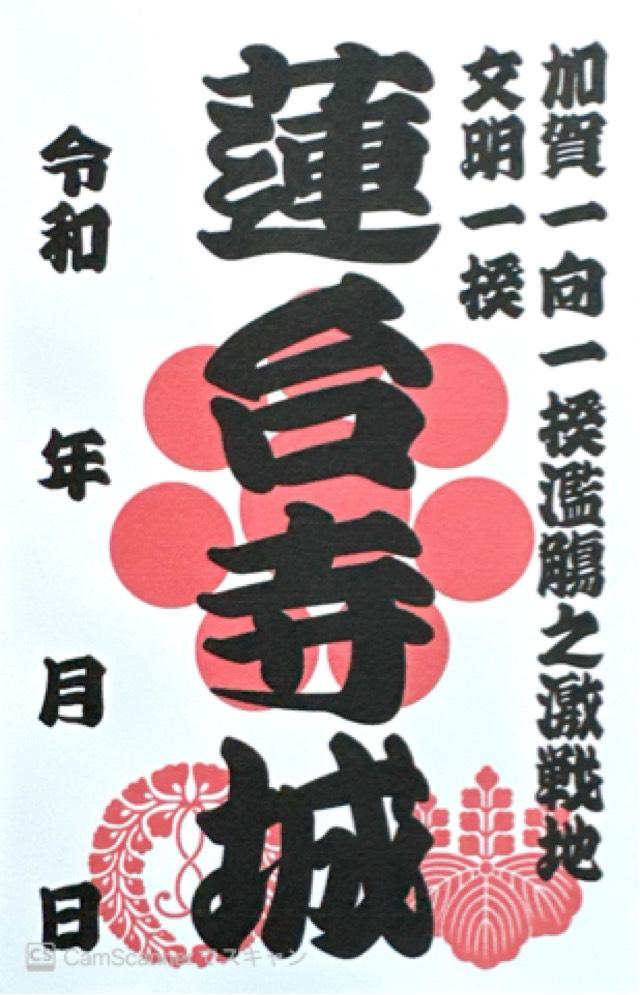 加賀一向一揆濫觴之激戦地
文明一揆
蓮台寺城
令和 年 月 日
CS CamScannerでスキャン